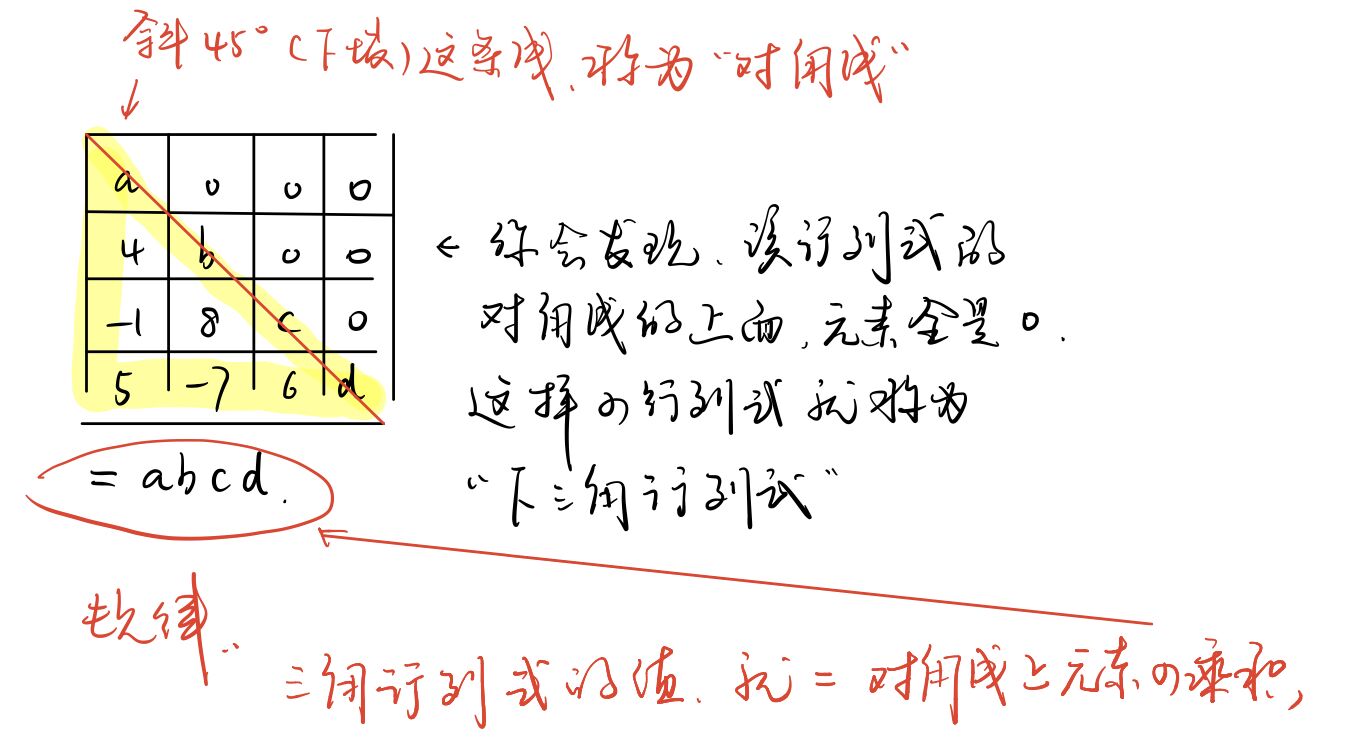 斜45°(下坡)这条线,称为“对角线”
a 0 0 0
4 b 0 0
-1 8 c 0
5 -7 6 d
= abcd.
← 你会发现,该行列式的
对角线的上面,元素全是0.
这样的行列式就称为
“下三角行列式”
规律:
三角行列式的值,就=对角线上元素的乘积,